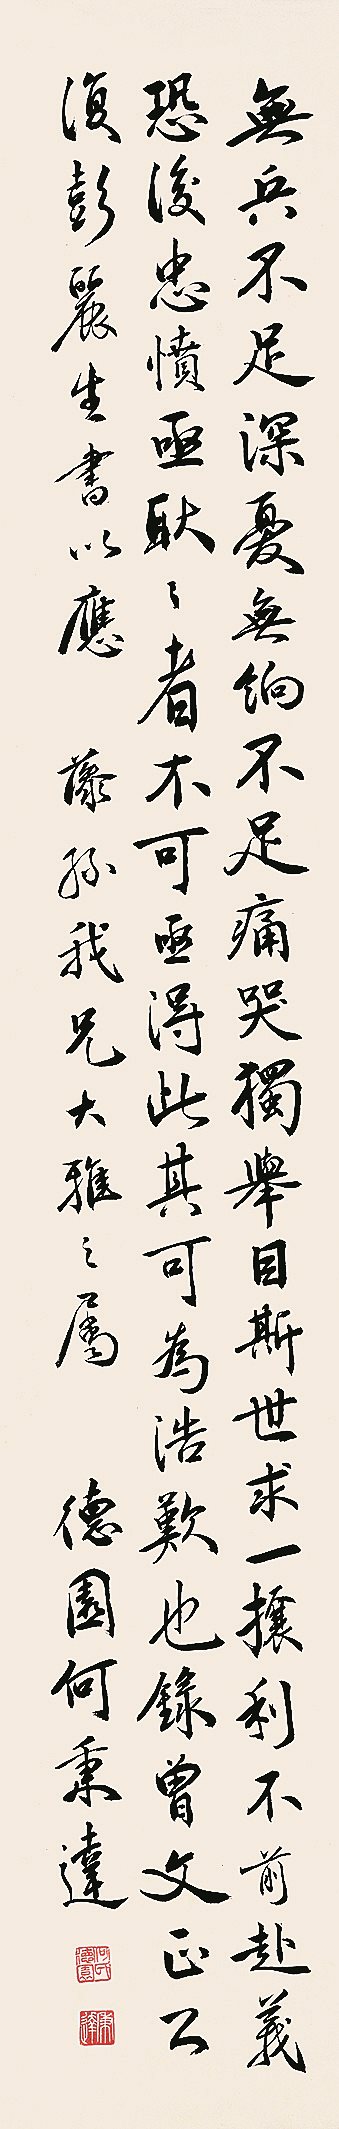 無兵不足深憂無餉不足痛哭獨舉目斯世求一攘利不前赴義
恐後忠憤亟耿々者不可亟得此其可為浩歎也錄曾文正公
復彭麗生書以應 我兄大雅之屬 德園何秉達
何氏德園
秉達